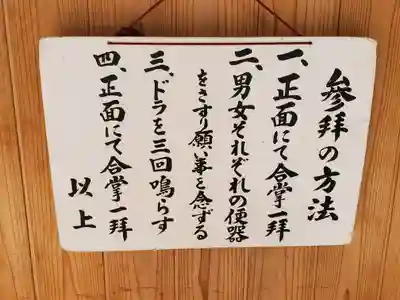 参拝の方法
一、正面にて合掌一拝
二、男女それぞれの便器
をさすり願い事を念ずる
三、ドラを三回鳴らす
四、正面にて合掌一拝
以上